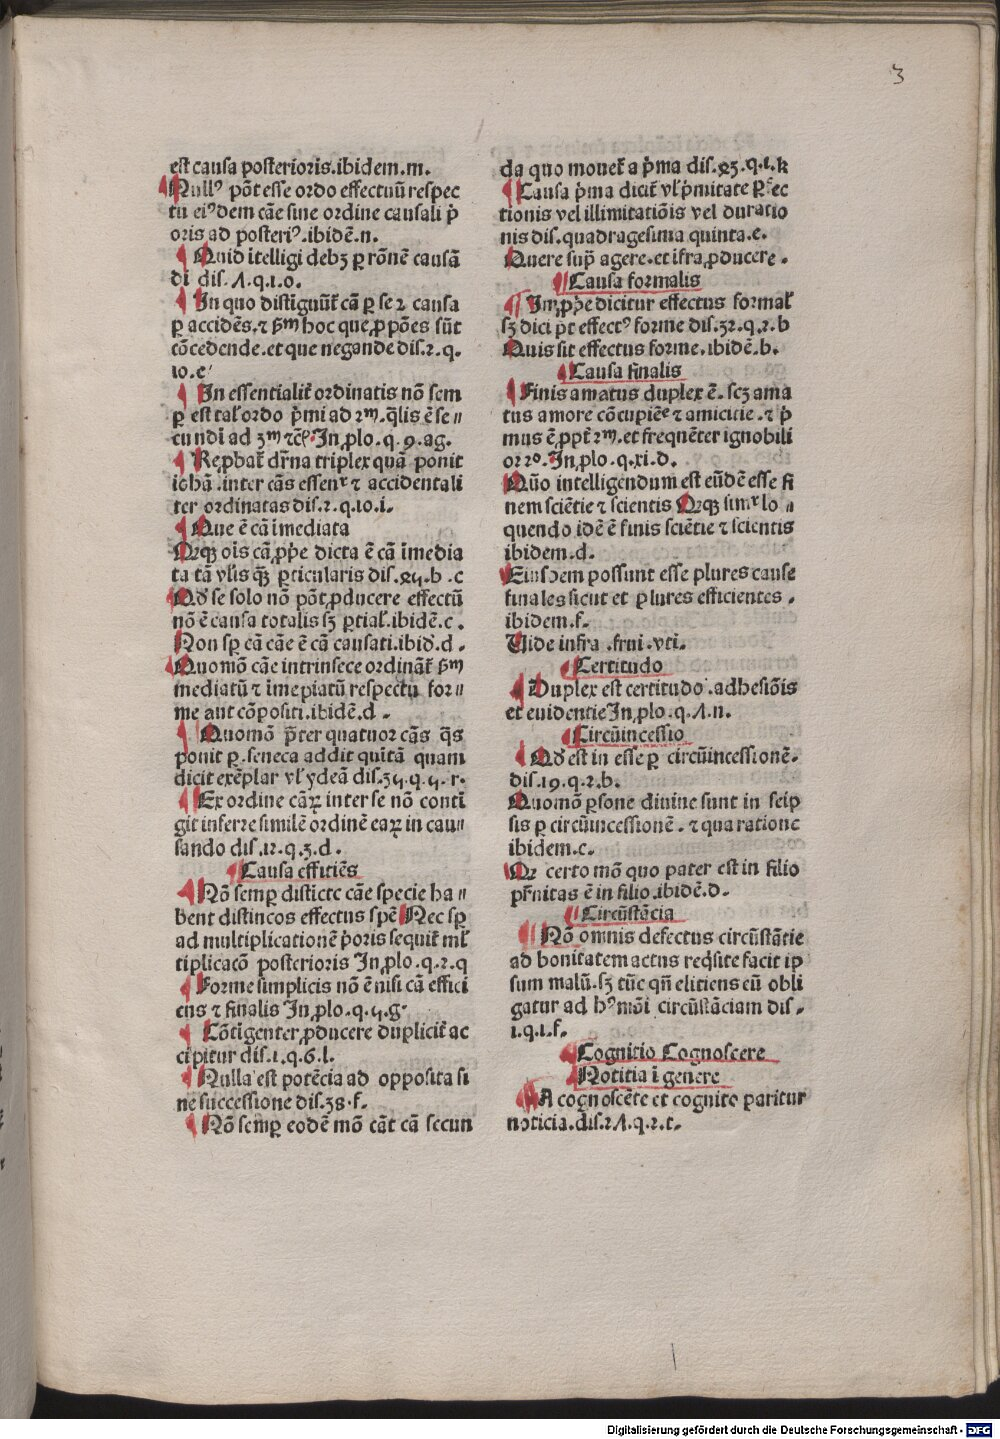 3
est causa posterioris.ibidem.m.
¶ Null⁹ põt esse ordo effectuũ respec
tu ei⁹dem cãe sine ordine causali p̃
oris ad posteri⁹.ibidẽ.n.
¶ Quid itelligi debꝫ ꝑ rõnẽ causã
di dis.Λ.q.1.o.
¶ In quo distiguũt̃ cã ꝑ se ⁊ causa
ꝑ accidẽs.⁊ ẜm hoc que ꝓpões sũt
cõcedende.et que negande dis.2.q.
10.e
¶ In essentialit̃ ordinatis nõ sem
ꝑ est tał ordo p̃mi ad 2m.q̃lis ẽ se〃
cundi ad 3m ⁊cᷓ.In ꝓlo.q.9.ag.
¶ Reꝓbat̃ dr̃na triplex quã ponit
iohã.inter cãs essenr ⁊ accidentali
ter ordinatas dis.2.q.10.i.
¶ Que ẽ cã ĩmediata
Qꝛqꝫ oĩs cã ꝓp̃e dicta ẽ cã ĩmedia
ta tã vłis q̃ꝫ ꝑticularis dis.45.b.c
Qd̃ se solo nõ põt ꝓducere effectũ
nõ ẽ causa totalis sꝫ ꝑtiał.ibidẽ.c.
Non sꝑ cã cãe ẽ cã causati.ibid̃.d.
Quomõ cãe intrinsece ordinãt̃ ẜm
mediatũ ⁊ ĩmepiatũ respectu for〃
me aut cõpositi.ibidẽ.d.
¶ Quomõ p̃ter quatuor cãs q̃s
ponit ꝑ.seneca addit quĩtã quam
dicit exẽplar vł ydeã dis.35.q.5.r.
¶ Ex ordine cãꝝ inter se nõ contĩ
git inferre similẽ ordinẽ eaꝝ in cau〃
sando dis.12.q.3.d.
¶ Causa efficiẽs
¶ Nõ semꝑ distictc cãe specie ha〃
bent distincos effectus spẽ Nec sꝑ
ad multiplicationẽ p̃oris sequit̃ mł
tiplicacõ posterioris In ꝓlo.q.2.q
¶ Forme simplicis nõ ẽ nisi cã effici
ens ⁊ finalis In ꝓlo.q.5.g.
¶ Cõtigenter ꝓducere duplicit̃ ac
cipitur dis.1.q.6.l.
¶ Nulla est potẽcia ad opposita si
ne successione dis.38.f.
¶ Nõ semꝑ eodẽ mõ cãt cã secun
da quo mouet̃ a p̃ma dis.45.q.1.k
¶ Causa p̃ma dicit̃ vł p̃mitate ꝑfec
tionis vel illimitatiõis vel duratio
nis dis.quadragesima quinta.e.
Quere sup̃ agere.et ifra ꝓducere.
¶ Causa formalis
¶ Imꝓp̃e dicitur effectus formał
sꝫ dici p̃t effect⁹ forme dis.32.q.2.b
Quis sit effectus forme.ibidẽ.b.
¶ Causa finalis
¶ Finis amatus duplex ẽ.scꝫ ama
tus amore cõcupiẽe ⁊ amicitie.⁊ p̃
mus ẽ ꝓpt̃ 2m.et freqñẽter ignobili
or 2o.In ꝓlo.q.xi.d.
Qũo intelligendum est eũdẽ esse fi
nem sciẽtie ⁊ scientis Qꝛqꝫ simr lo〃
quendo idẽ ẽ finis sciẽtie ⁊ scientis
ibidem.d.
Eiusdem possunt esse plures cause
finales sicut et plures efficientes.
ibidem.f.
Vide infra.frui.vti.
¶ Certitudo
¶ Duplex est certitudo.adhesiõis
et euidentie In ꝓlo.q.Λ.n.
¶ Circũincessio
¶ Qd̃ est in esse ꝑ circũincessionẽ.
dis.19.q.2.b.
Quomõ ꝑsone diuine sunt in seip
sis ꝑ circũincessionẽ.⁊ qua ratione
ibidem.c.
Qꝛ certo mõ quo pater est in filio
pr̃nitas ẽ in filio.ibidẽ.d.
¶ Circũstãcia
¶ Nõ omnis defectus circũstãtie
ad bonitatem actus req̃site facit ip
sum malũ.sꝫ tũc qñ elitiens eũ obli
gatur ad h⁹mõi circũstãciam dis.
1.q.1.f.
¶ Cognitio Cognoscere
¶ Notitia ĩ genere
¶ A cognoscẽte et cognito paritur
noticia.dis.2Λ.q.2.t.
Digitalisierung gefördert durch die Deutsche Forschungsgemeinschaft - DFG